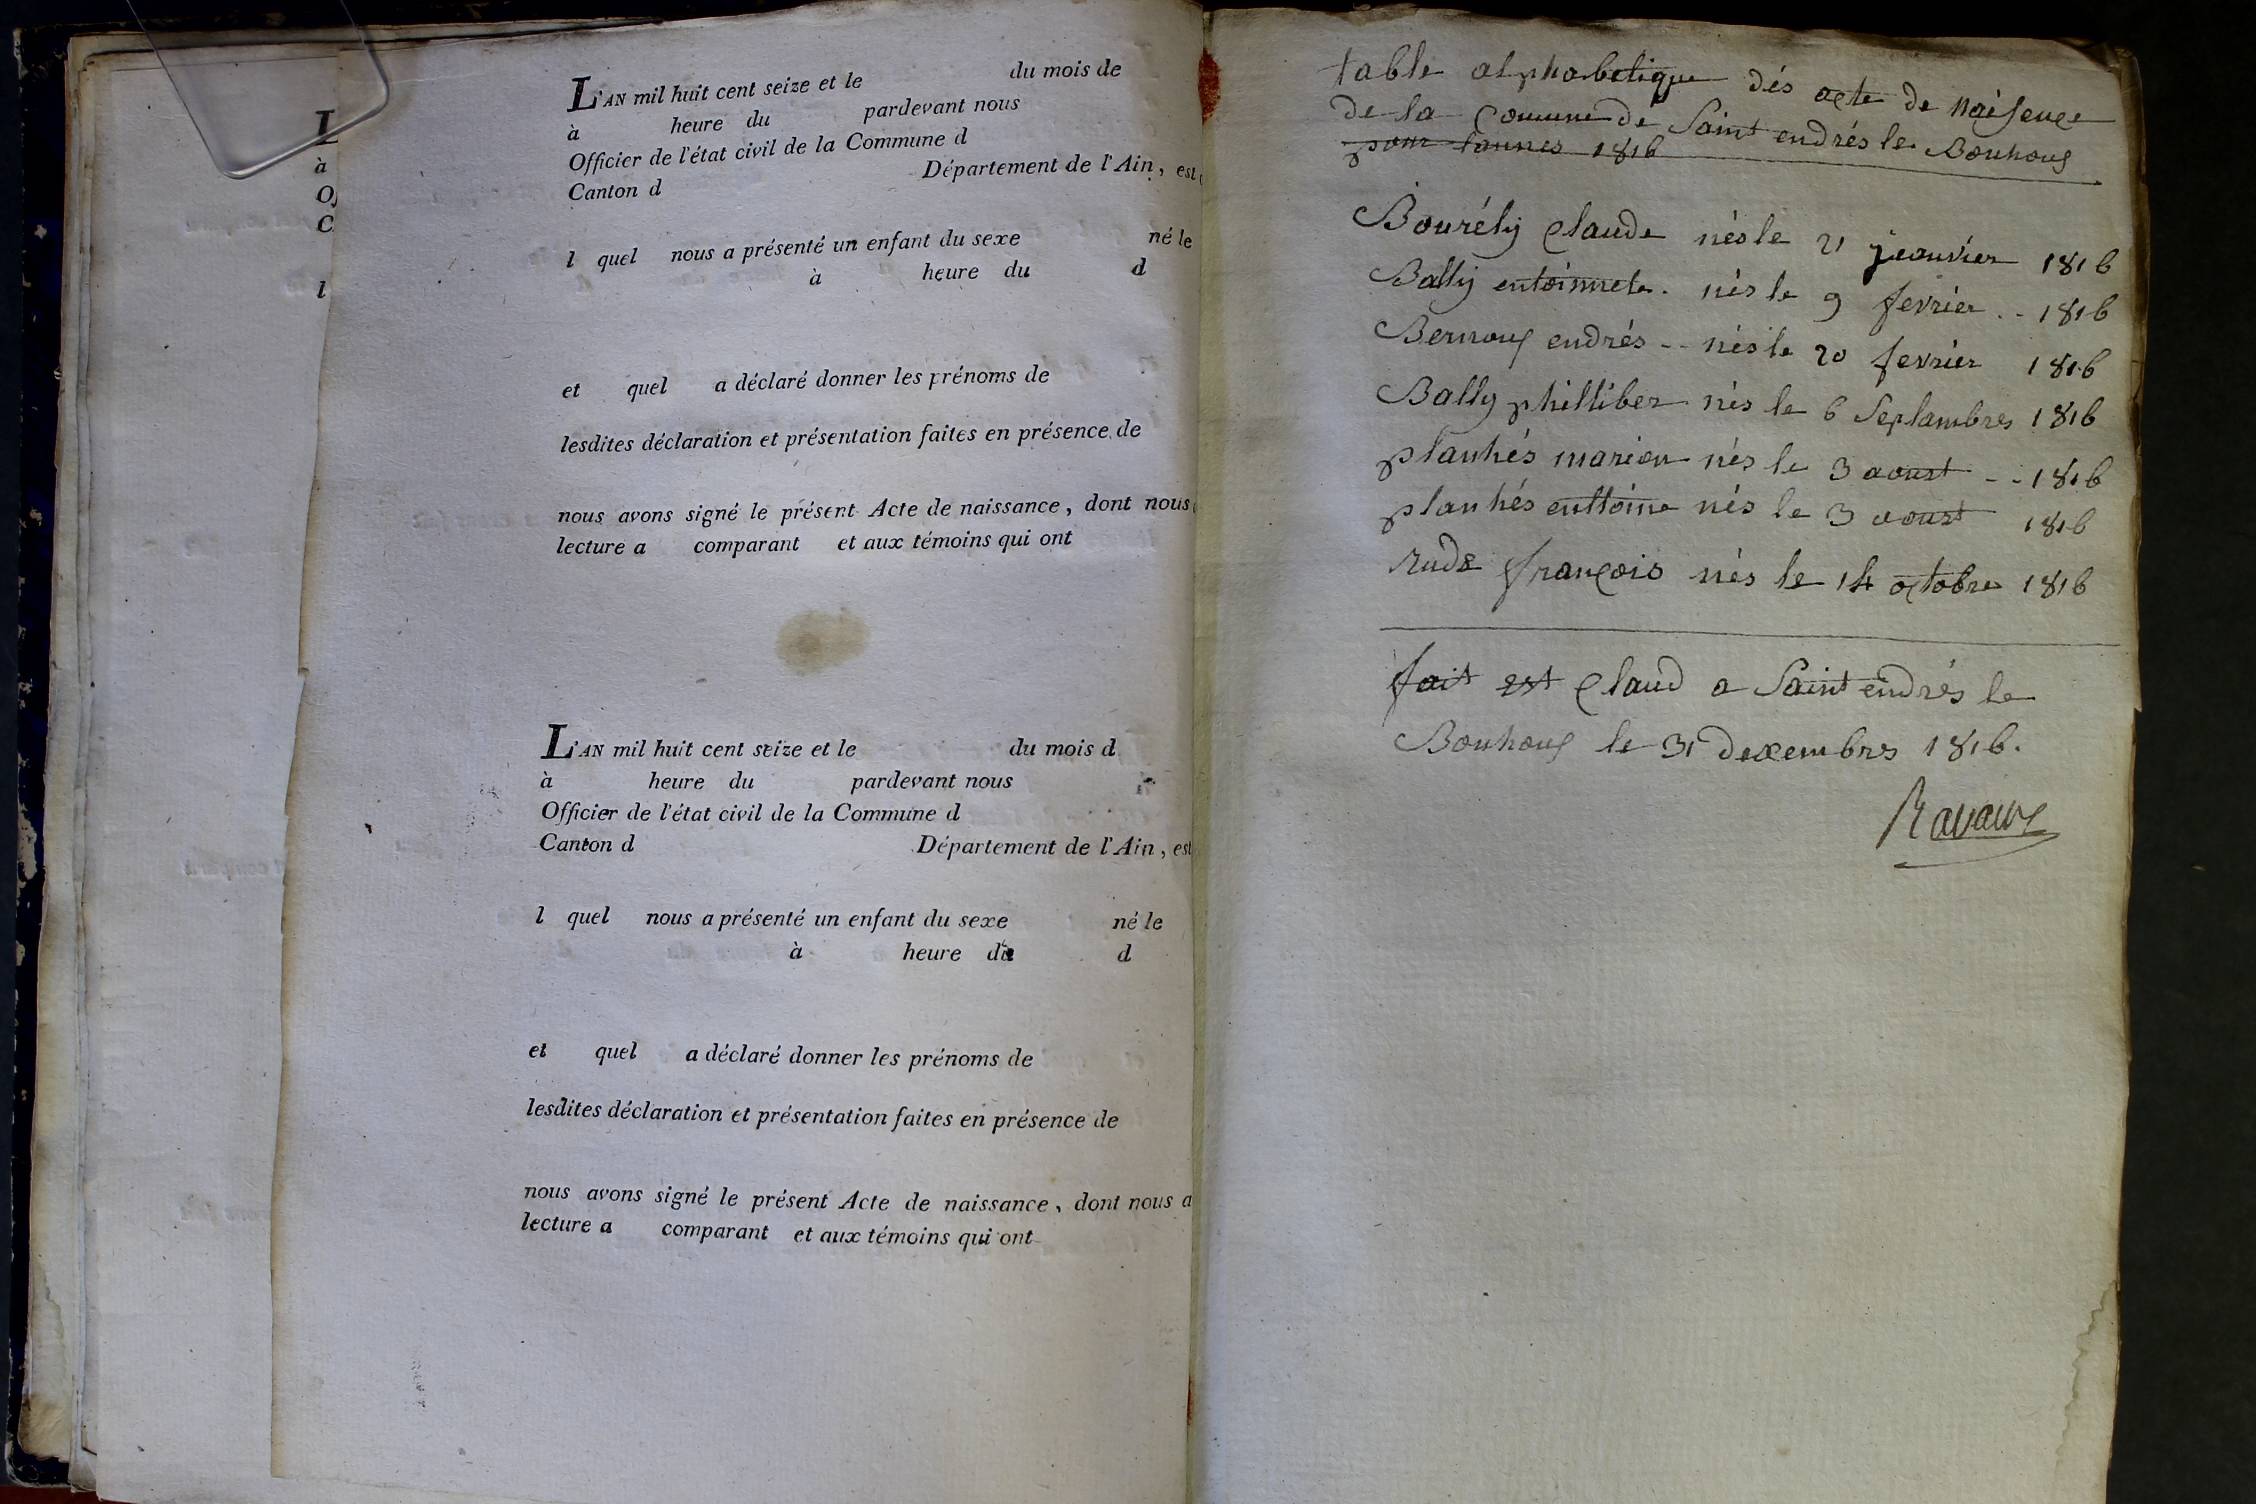 L
à
O
C
l
L'AN mil huit cent seize et le du mois de
à heure du pardevant nous
Officier de l'état civil de la Commune d
Canton d Département de l'Ain, est
l quel nous a présenté un enfant du sexe né le
à heure du d
et quel a déclaré donner les prénoms de
lesdites déclaration et présentation faites en présence de
nous avons signé le présent Acte de naissance, dont nous
lecture a comparant et aux témoins qui ont
L'AN mil huit cent seize et le du mois d
à heure du pardevant nous
Officier de l'état civil de la Commune d
Canton d Département de l'Ain, est
l quel nous a présenté un enfant du sexe né le
à heure du d
et quel a déclaré donner les prénoms de
lesdites déclaration et présentation faites en présence de
nous avons signé le présent Acte de naissance, dont nous a
lecture a comparant et aux témoins qui ont
table alphabetique dés acte de naisence
de la Comune de Saint endrés le Bouhoux
pour lannes 1816
Bourély Claude nés le 21 jeanvier 1816
Bally entoinnete. nés le 9 fevrier .. 1816
Bernoux endrés -- nés le 20 fevrier 1816
Bally philliber nés le 6 Septambres 1816
planhés marion nés le 3 aoust -- 1816
planhés enttoine nés le 3 aoust 1816
rude françois nés le 14 octobre 1816
fait est Claud a Saint endrés le
Bouhoux le 31 dexembres 1816.
Ravaux